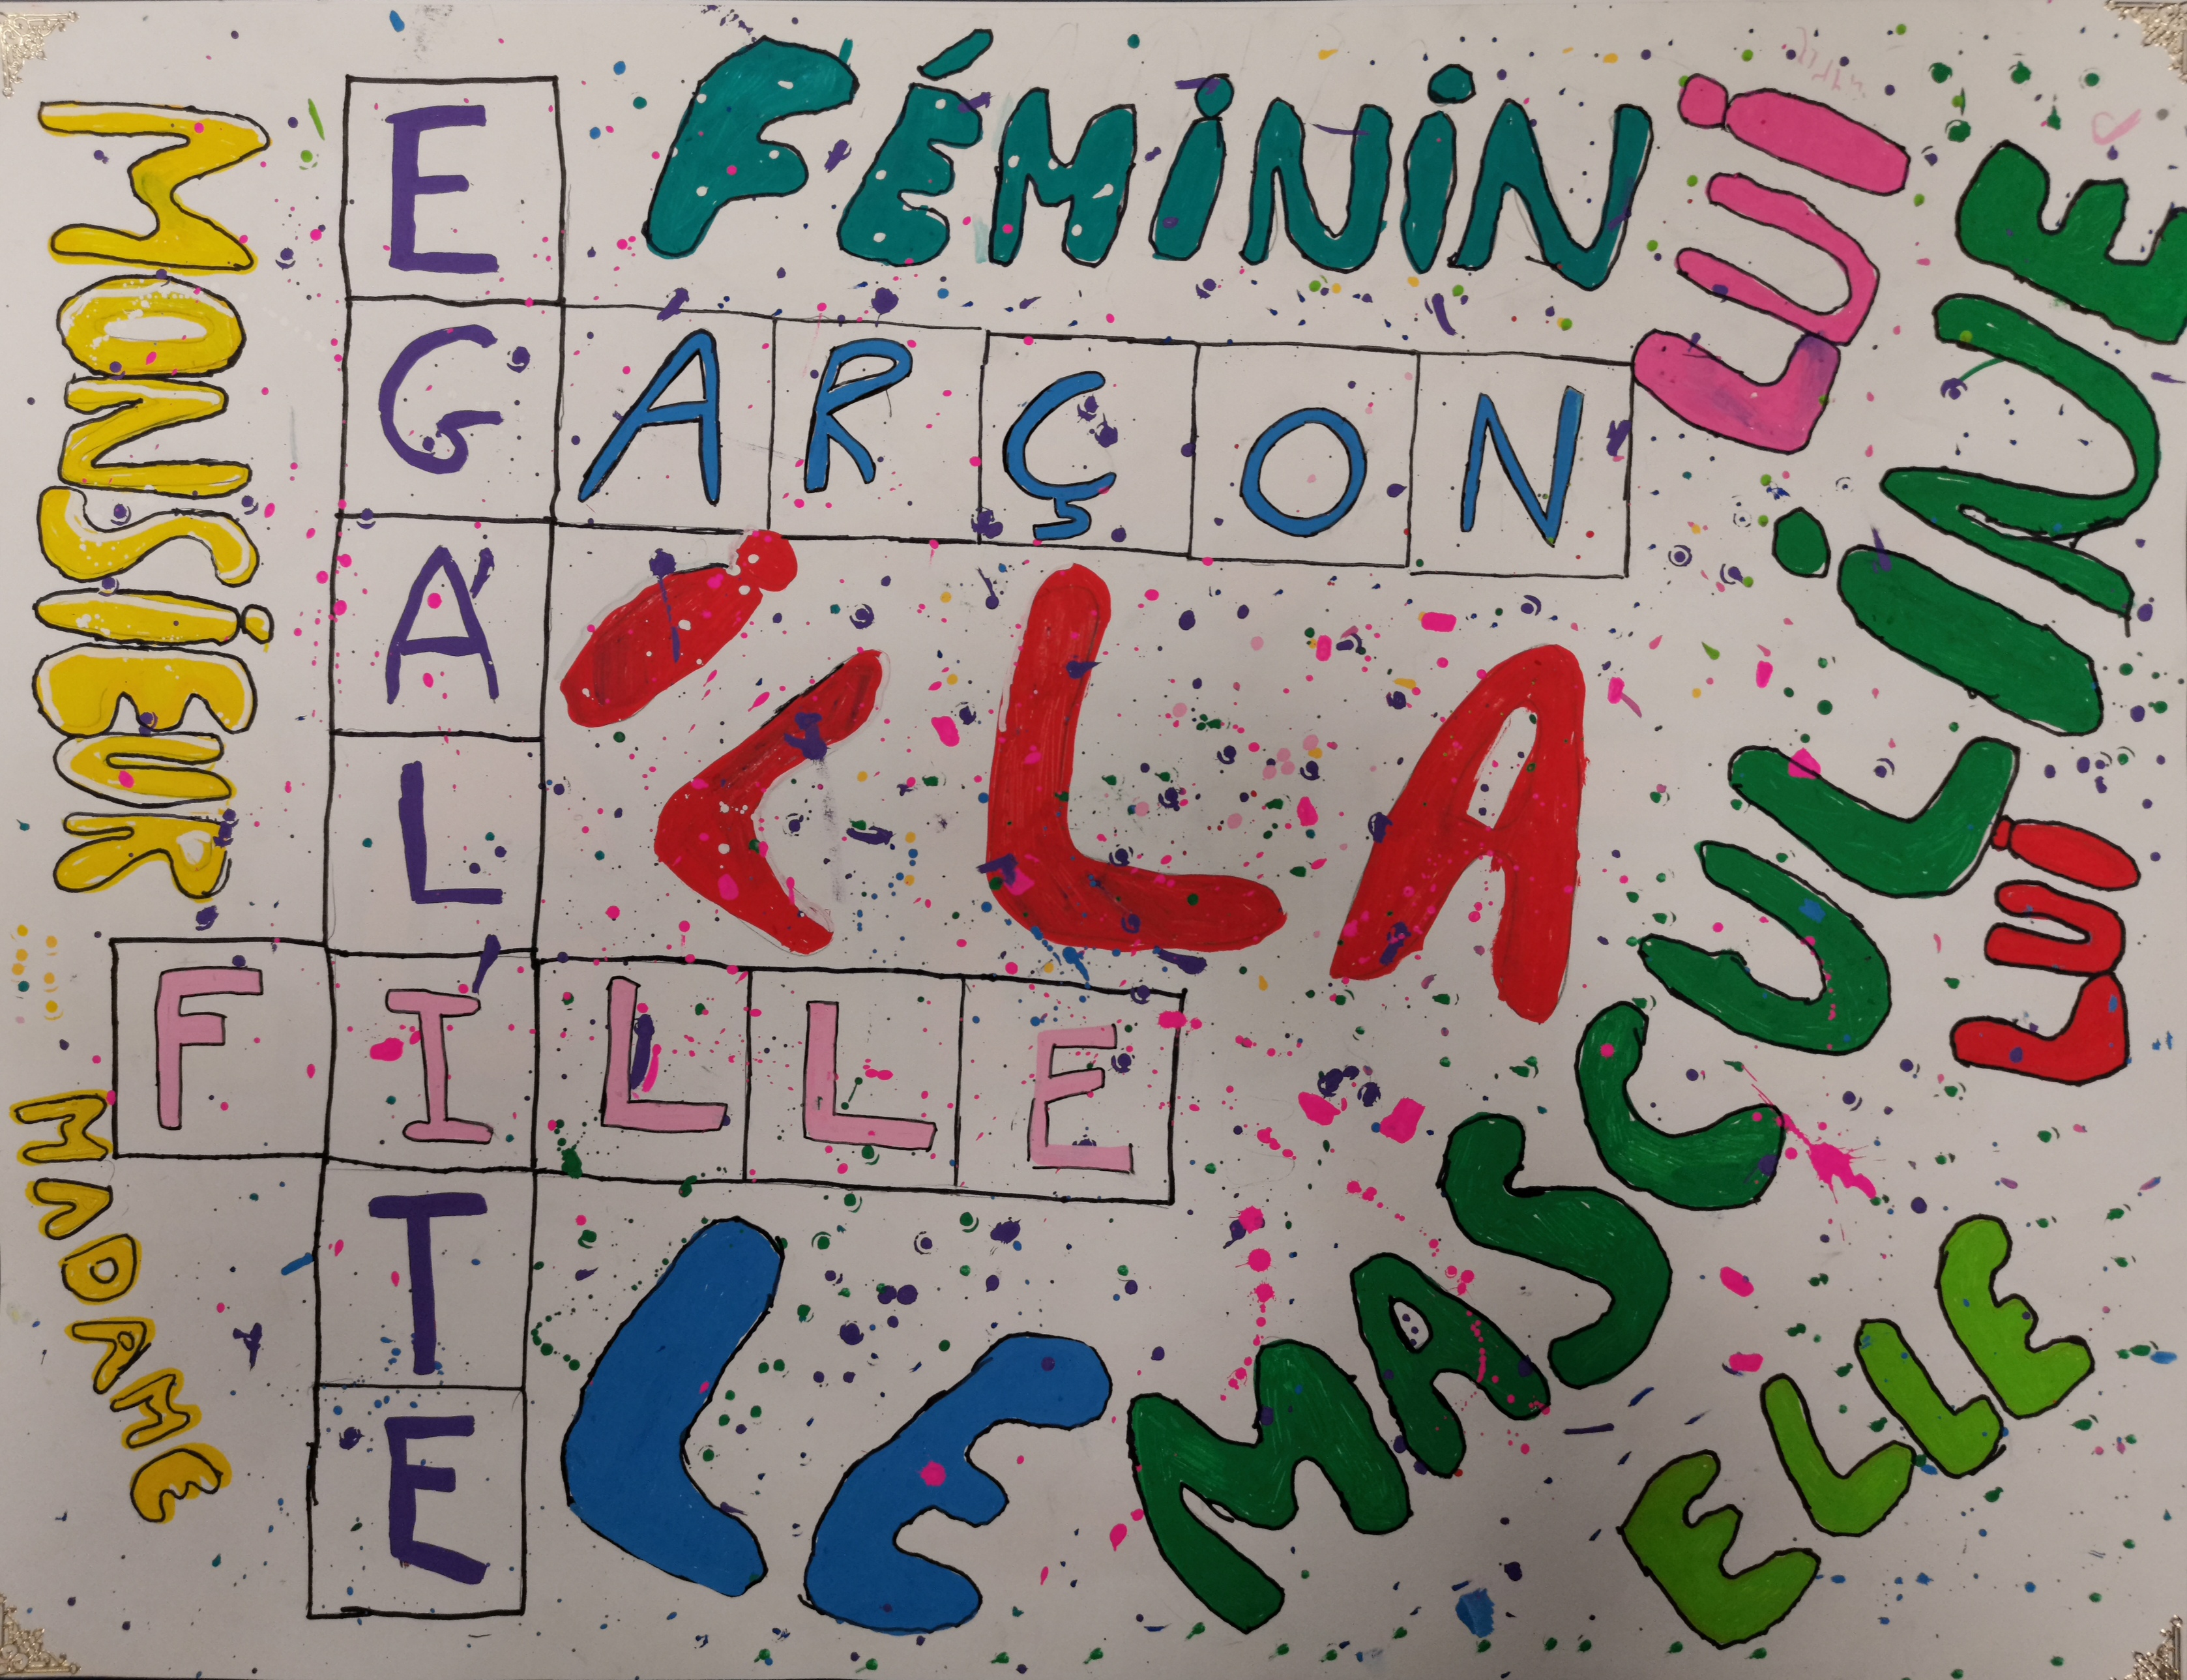 MONSiEUR
EGALITE
FÉMiNiN
LUI
GARÇON
iL
LA
MASCULiNE
LUI
FILLE
MADAME
LE
ELLE